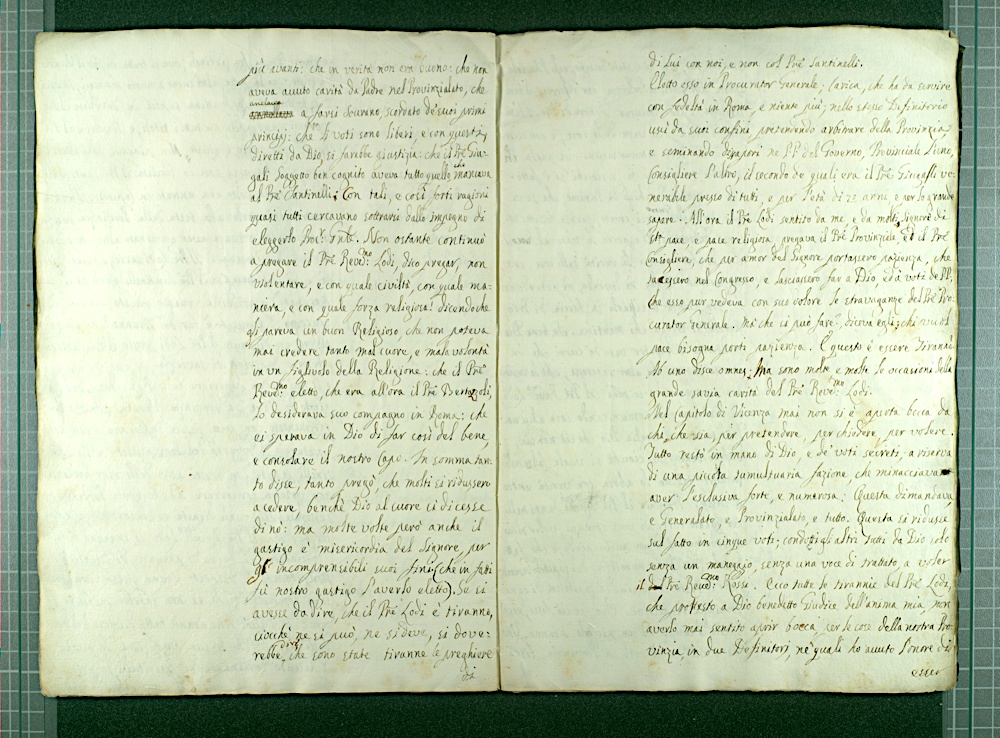 più avanti: che in verità non era buono: che non
aveva avuto carità da Padre nel Provinzialato, che
anelava
a farsi Sovrano scordato de suoi primi
principj: che li voti sono liberi, e con questa,
diretti da Dio, si farebbe giustizia: che il Pre Gia-
gali soggetto ben cognito aveva tutto quello che mancava
al Pre Santinelli; Con tali, e così forti ragioni
quasi tutti cercavano sottrarsi dallo impegno di
eleggerlo Non ostante continuò
a pregare il Pre Revdmo: Lodi, dico pregar, non
violentare, e con quale civiltà, con quale ma-
niera, e con quale forza religiosa! dicendo che
gli pareva un buon Religioso, che non poteva
mai credere tanto mal cuore, e mala volontà
in un Figliuolo della Religione: che il Pre
Revdmo eletto, che era all'ora il Pre Bertazzoli,
lo desiderava suo compagno in Roma: che
ei sperava in Dio di far così del bene
e consolare il nostro Capo. In somma tan-
to disse, tanto pregò, che molti si ridussero
a cedere, benchè Dio al cuore ci dicesse
di nò: ma molte volte però anche il
gastigo è misericordia del Signore, per
gl' incomprensibili suoi fini (che in fatti
fù nostro gastigo l'averlo eletto). Se si
avesse da dire, che il Pre Lodi è tiranno,
ciocchè ne si può, ne si deve, si dove-
rebbe dire, che sono state tiranne le preghiere
di
di Lui con noi, e non col Pre Santinelli.
Eletto esso in Procurator Generale, carica, che ha da servire
con fedeltà in Roma, e niente più; nello stesso Definitorio
uscì da suoi confini, pretendendo arbitrare della Provinzia,
e seminando dissapori ne PP. del Governo, Provinciale
Consigliere Salvo, il secondo de quali era il Pre ve-
nerabile presso di tutti, e per l'età di 72 anni, e per lo grande
sapere. All'ora il Pre Lodi sentito da me, e da molti Signore di-
pace, e pace religiosa, pregava il Pre Provinziale, ed il Pre
Consigliere, che per amor del Signore portassero pazienza, che
tacessero nel Congresso, e lasciassero far a Dio, ed a' voti de PP.
che esso pur vedeva con suo dolore le stravaganze del Pre Pro-
curator Generale. Mà che si può fare? diceva egli: chi vuol
pace bisogna porti pazienza. E questo è essere Tiranni?
Ab uno disce omnes: Ma sono molte e molte le occasioni della
grande savia carità del Pre Revdmo: Lodi.
Nel capitolo di Vicenza mai non si è aperta bocca da
chi che sia, per pretendere, per chiedere, per volere.
Tutto restò in mano di Dio, e de' voti secreti, a riserva
di una picciola tumultuaria fazione, che minacciava
aver l'esclusiva forte, e numerosa: Questa dimandava,
e Generalato, e Provinzialato, e tutto. Questa si ridusse
sul fatto in cinque voti; condotti gli altri tutti da Dio solo
senza un maneggio, senza una voce di trattato, a voler
il Pre Revdmo: Rossi. Ecco tutte le tirannie del Pre Lodi,
che protesto a Dio benedetto Giudice dell'anima mia, non
averlo mai sentito aprir bocca per le cose della nostra Pro-
vinzia, in due Definitorj, ne' quali ho avuto l'onore di
esser